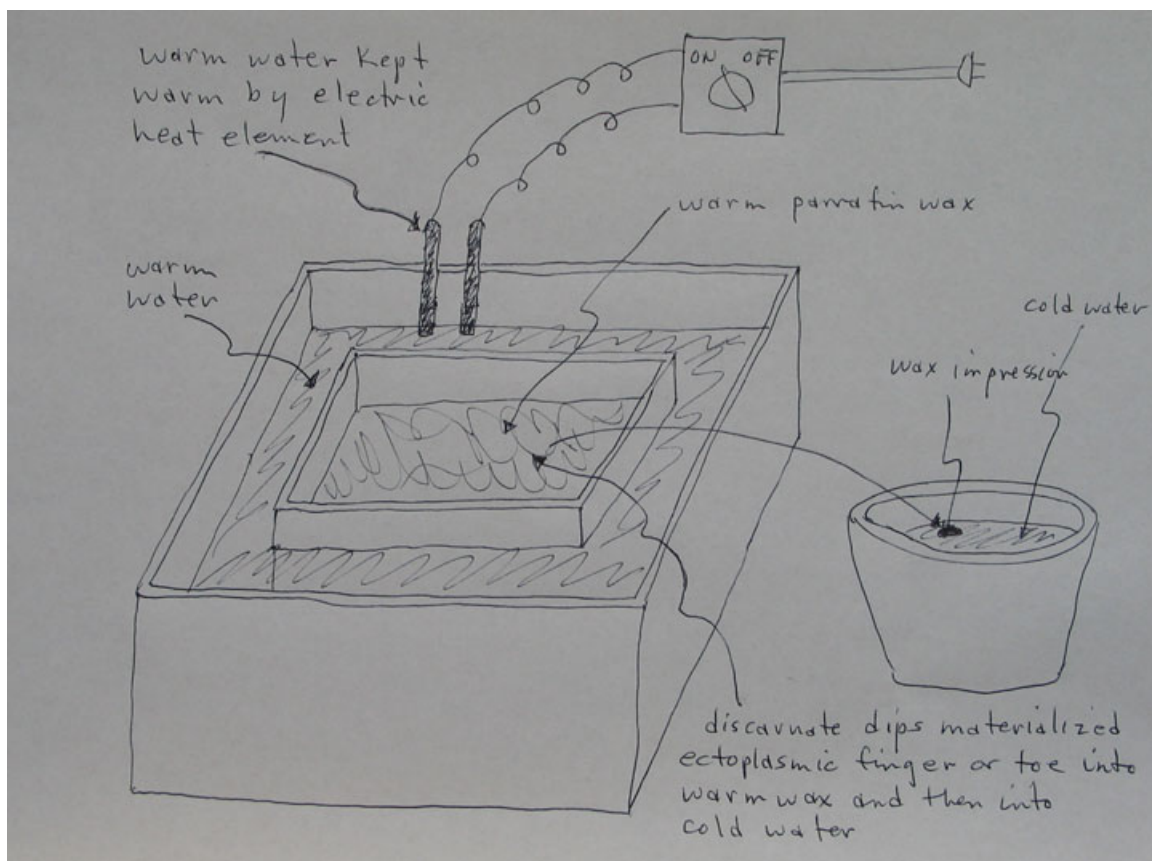 warm water Kept
warm by electric
heat element
ON OFF
warm parrafin wax
warm
water
cold water
wax impression
discarnate dips materialized
ectoplasmic finger or toe into
warm wax and then into
cold water